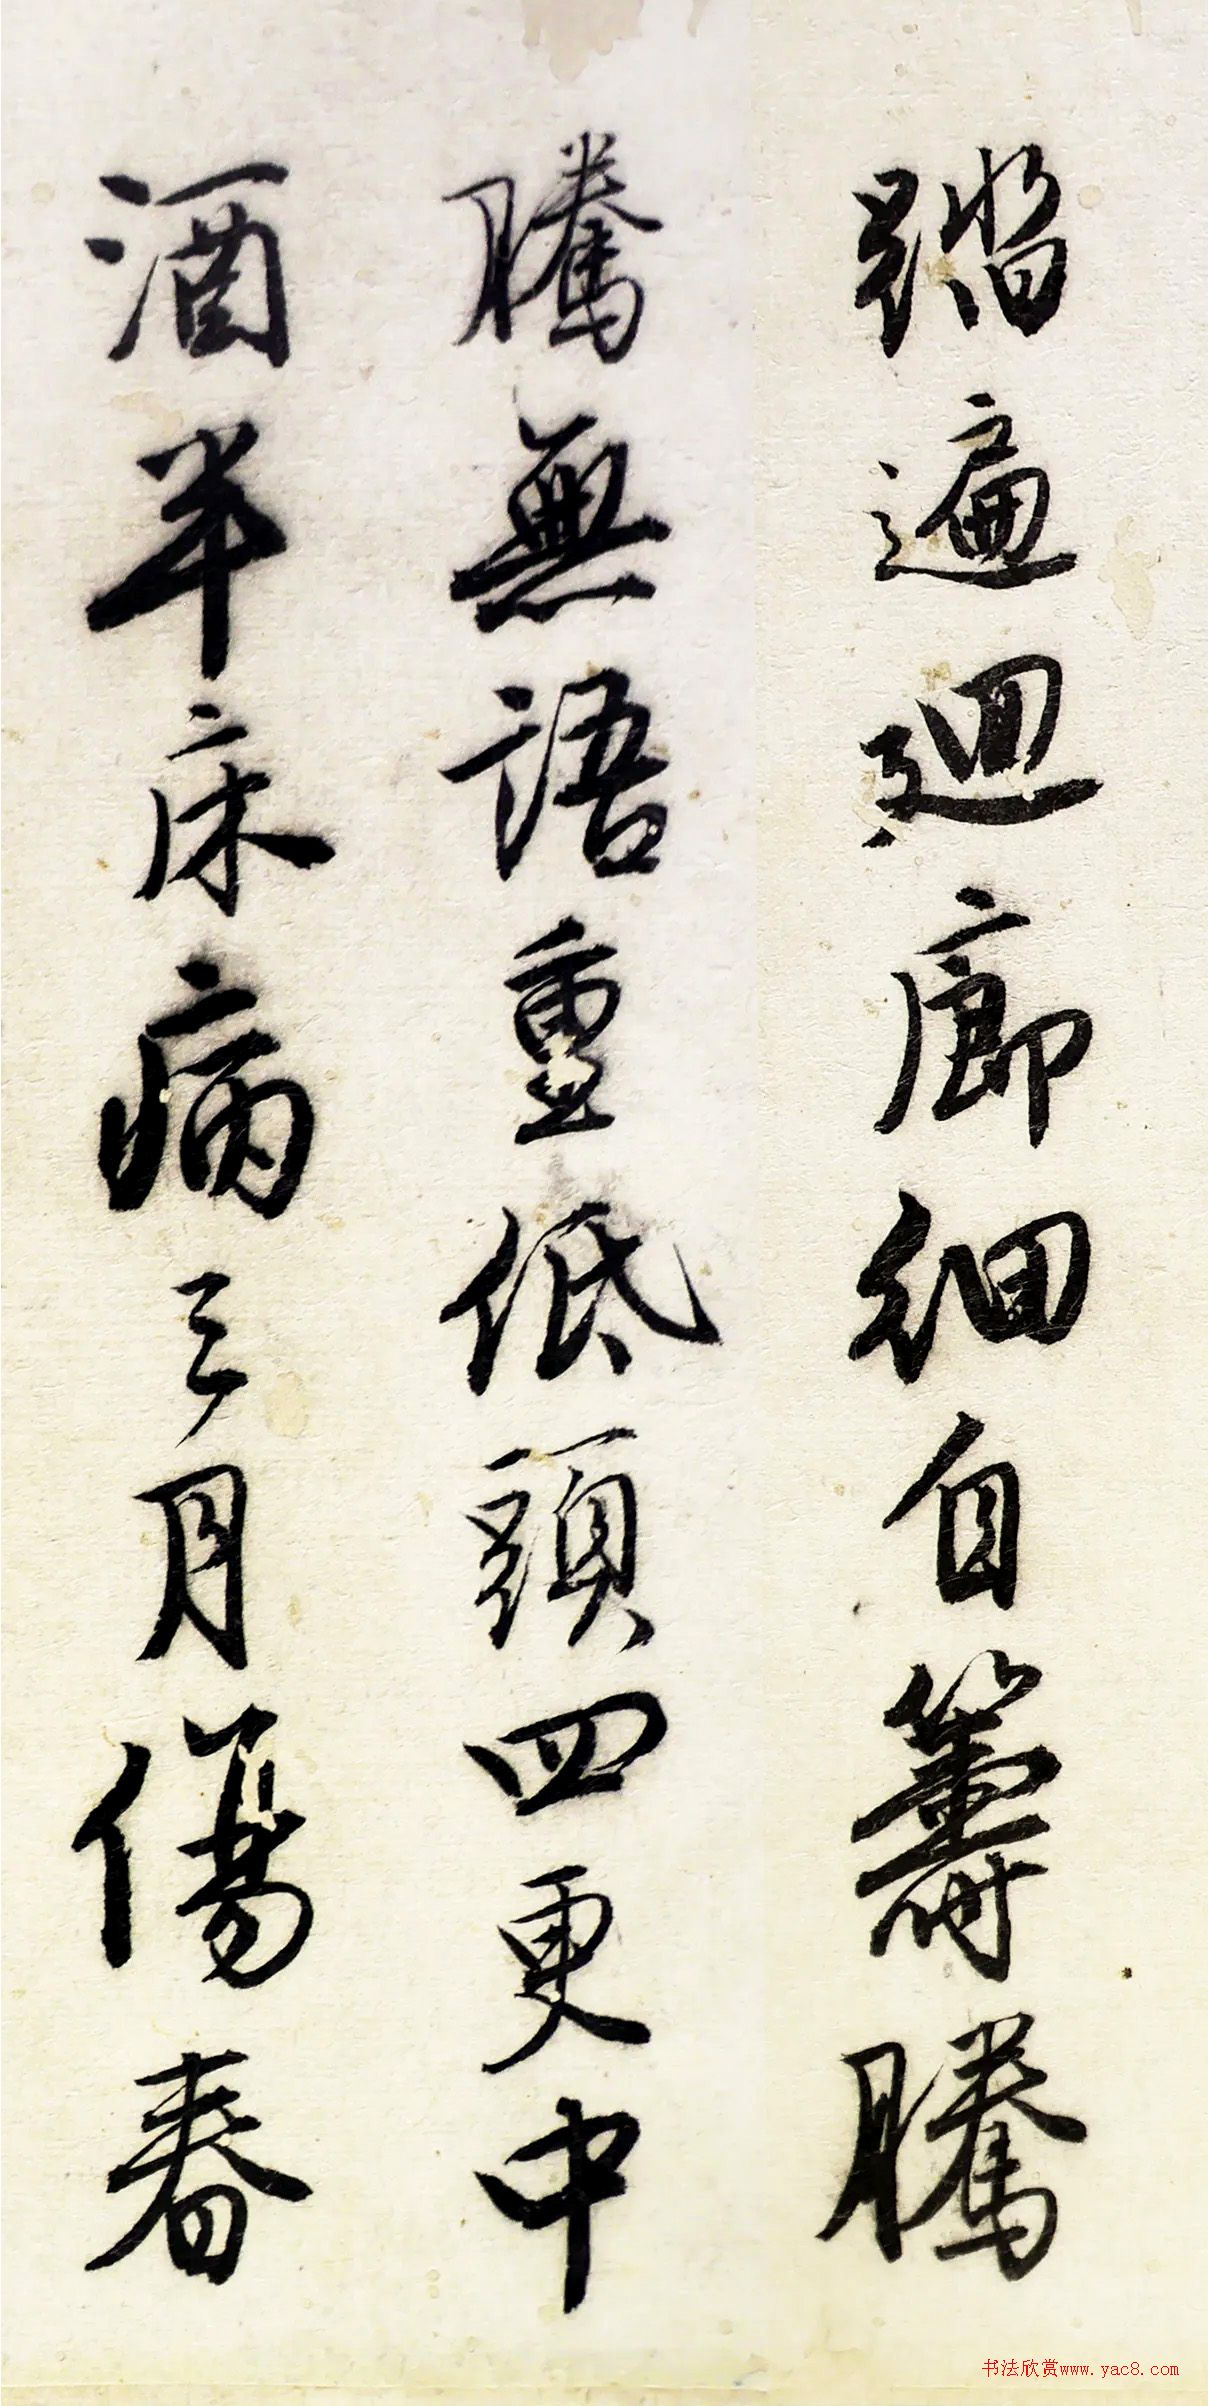 踏遍迴廊細自籌騰
騰無語重低頭四更中
酒半床病三月傷春
书法欣赏www.yac8.com